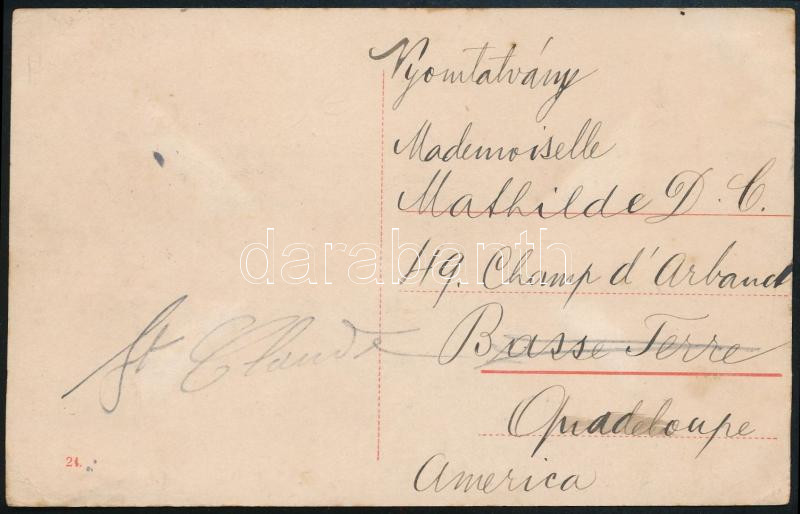 Nyomtatvány
Mademoiselle
Mathilde D. C.
49. Champ d'Arbaud
Basse Terre
Quadeloupe
America
St Claude
21.
darabanth